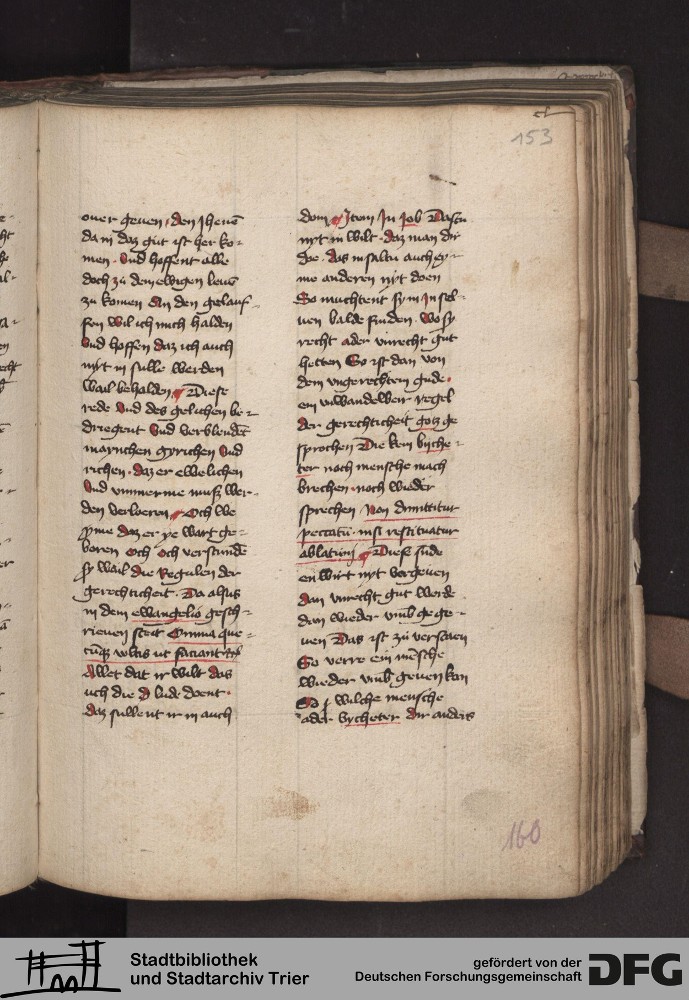 153
ouer geuen · den Jhenē
da in daz gut ist her ko-
men · Vnd hoffent alle
doch zu dem ewigen leuē
zu komen An den gelauf-
fen wil ich mich halden
Vnd hoffen daz ich auch
nyt in sulle werden
wail behalden Diese
rede Vnd des gelichen be-
driegent Vnd verblendēt
maynchen gyrichen Vnd
richen · daz er ewelichen
Vnd vmmerme muß wer-
den verloeren Och we
daz er ye wart ge-
boren och och verstunde
sy wail die Regulen der
gerechticheit · Da alsus
in dem ewangelio gesch-
rieuen steit Omnia que-
cūqȝ vltis ut faciant
Allet dat ir wilt das
uch die lude doent ·
daz sullent ir in auch
dom Jtem Jn Job Dastu
nyt in wilt · daz man dir
doe · das in saltu auch ey-
me anderen nyt doen
So muchtent sy in sel-
uen balde finden · wo sy
recht ader unrecht gut
hetten So ist dan von
dem ungerechten gude ·
ein vnwandelber regel
der gerechticheit gotz ge
sprochen Die kein biche-
ter noch mensche mach
brechen · noch wieder
sprechen Non dimittitur
peccatū · nisi restituatur
ablatum Diese sude
en wirt nyt vergeuen
dan vnrecht gut werde
dan wieder vmb ge ge-
uen Das ist zu verstaen
So verre ein mēsche
wieder vmb geuen kan
wilche mensche
ader bycheter dir anders
160
Stadtbibliothek
und Stadtarchiv Trier
gefördert von der
Deutschen Forschungsgemeinschaft
DFG